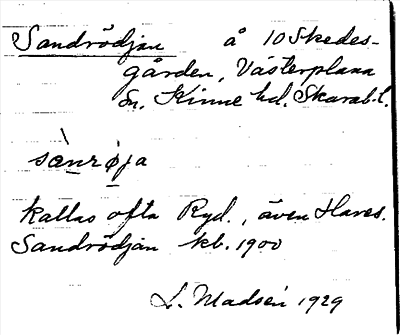 Sandrödjan å 10 Skedes-
gården, Västerplana
sn. Kinne hd. Skarab.l.
sænrøja
kallas ofta Ryd., även Haves.
Sandrödjan kb. 1900
L. Madsén 1929